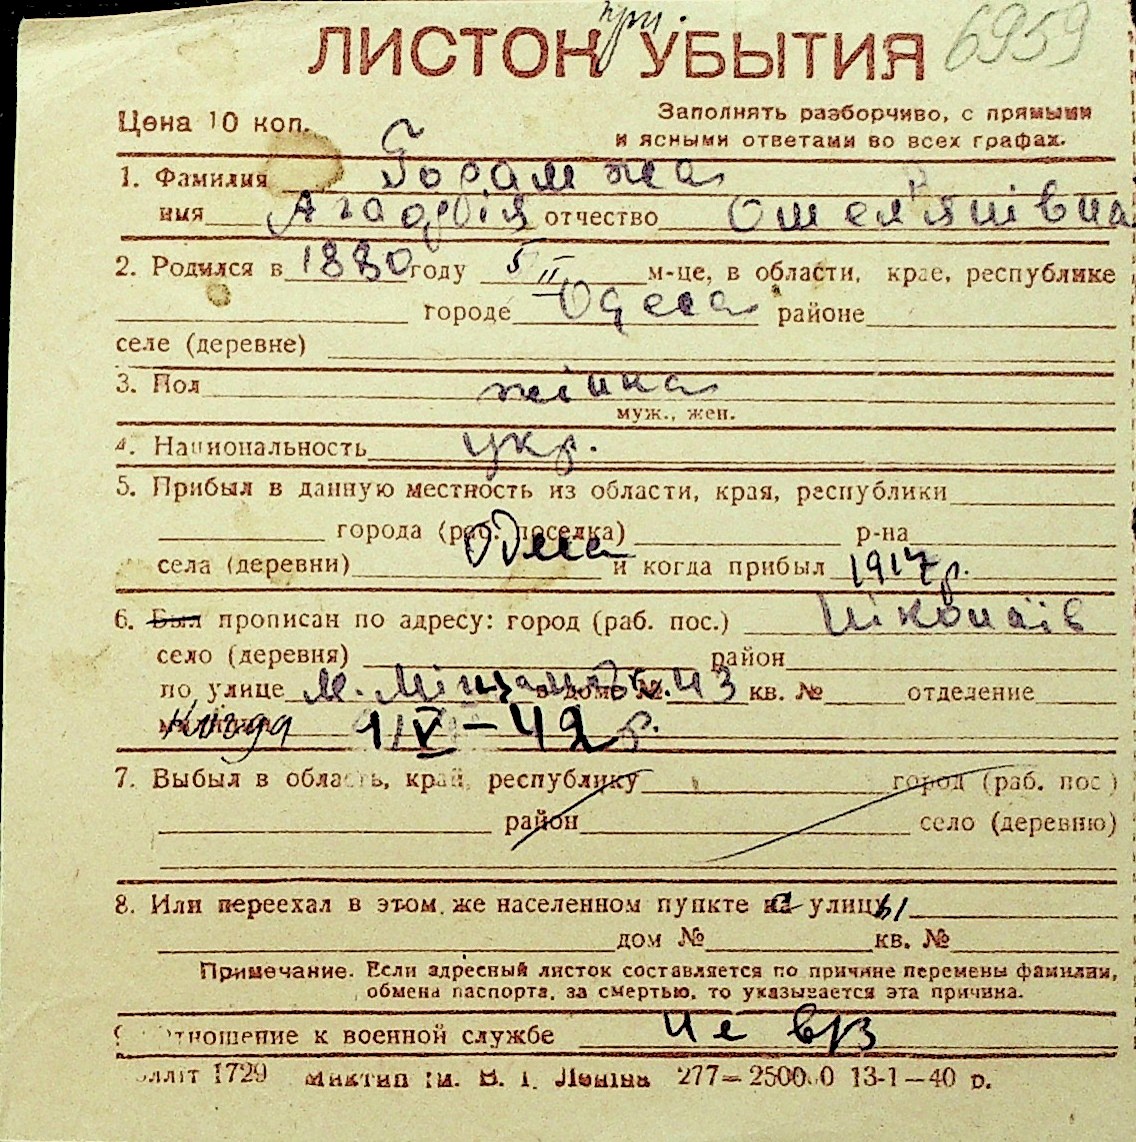 при.
ЛИСТОК УБЫТИЯ 6959
Цена 10 коп.
Заполнять разборчиво, с прямыми
и ясными ответами во всех графах.
1. Фамилия
имя отчество Омелянівна
2. Родился в 1880 году 5/II м-це, в области, крае, республике
городе Одеса районе
селе (деревне)
3. Пол жінка
муж., жен.
4. Национальность укр.
5. Прибыл в данную местность из области, края, республики
города (раб. поселка) р-на
села (деревни) Одеса и когда прибыл 1917 р.
6. Был прописан по адресу: город (раб. пос.) Ніколаїв
село (деревня) район
по улице дом № 43 кв. № отделение
милиции Когда 1/V-42 р.
7. Выбыл в область, край, республику город (раб. пос.)
район село (деревню)
8. Или переехал в этом же населенном пункте на с улицу ы
дом № кв. №
Примечание. Если адресный листок составляется по причине перемены фамилии,
обмена паспорта, за смертью, то указывается эта причина.
9. Отношение к военной службе не в/з
лліт 1729 Миктип ім. В. І. Леніна 277—250000 13-1—40 р.